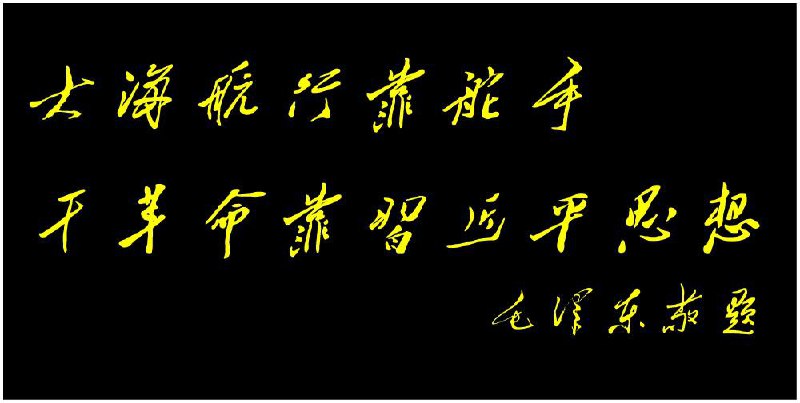 大海航行靠舵手
干革命靠習近平思想
毛澤东敬題